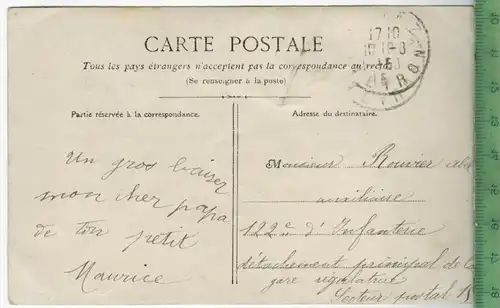 CARTE POSTALE
Tous les pays étrangers n'acceptent pas la correspondance au recto
(Se renseigner à la poste)
Partie réservée à la correspondance.
Adresse du destinataire.
Un gros baiser
mon cher papa
de ton petit
Maurice
Monsieur Rouvier
auxiliaire
122e d'Infanterie
détachement principal de
gare régulatrice
Secteur postal
1710
AVEYRON